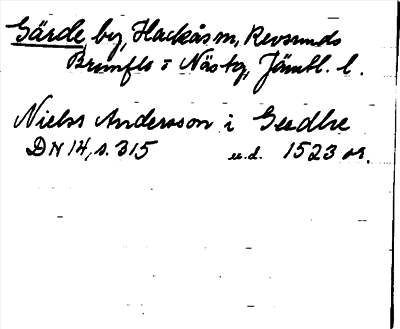 Gärde, by, Hackås m, Revsunds
Brunflo o Näs tg, Jämtl. l.
Niels Andersson i Gerdhe
DN 14, s. 315 u.d. 1523 or.